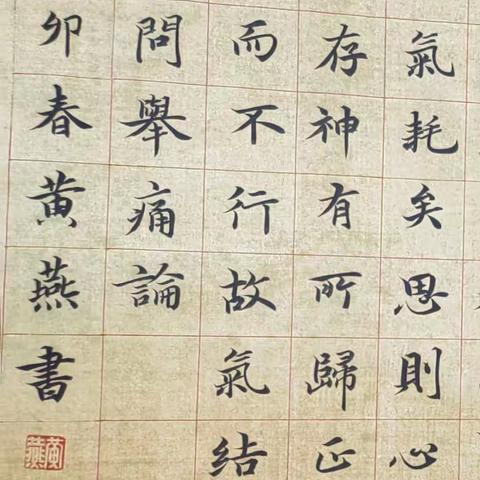 氣耗矣思則心
存神有所歸正
而不行故氣結
問舉痛論
卯春黄燕書
黄燕